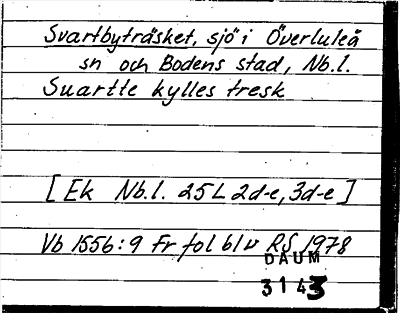 Svartbyträsket, sjö i Överluleå
sn och Bodens stad, Nb.l.
Suartte kylles tresk
[Ek Nb.l. 25L 2d-e, 3d-e]
Vb 1556:9 Fr fol bl v RS 1978
DAUM
3143